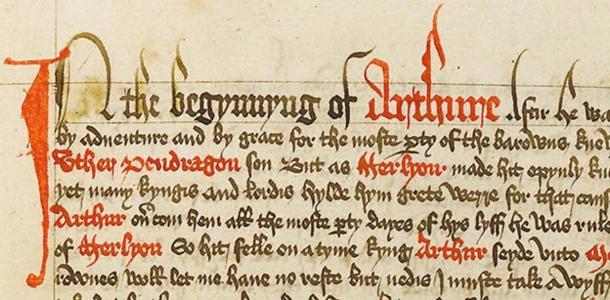 In the begynnyng of Arthure Aftir he wa
by adventure and by grace for the moste pty of the barowns knew
Uther Pendragon son But as Merlyon made hit opynly kn
yet many kyngis and lordis hylde hym grete werre for that caus
Arthur oūcom hem all the moste pty dayes of hys lyff he was rule
of Merlyon So hit felle on a tyme kyng Arthur seyde unto Me
rownes woll let me have no reste but nedis I muste take a wyff